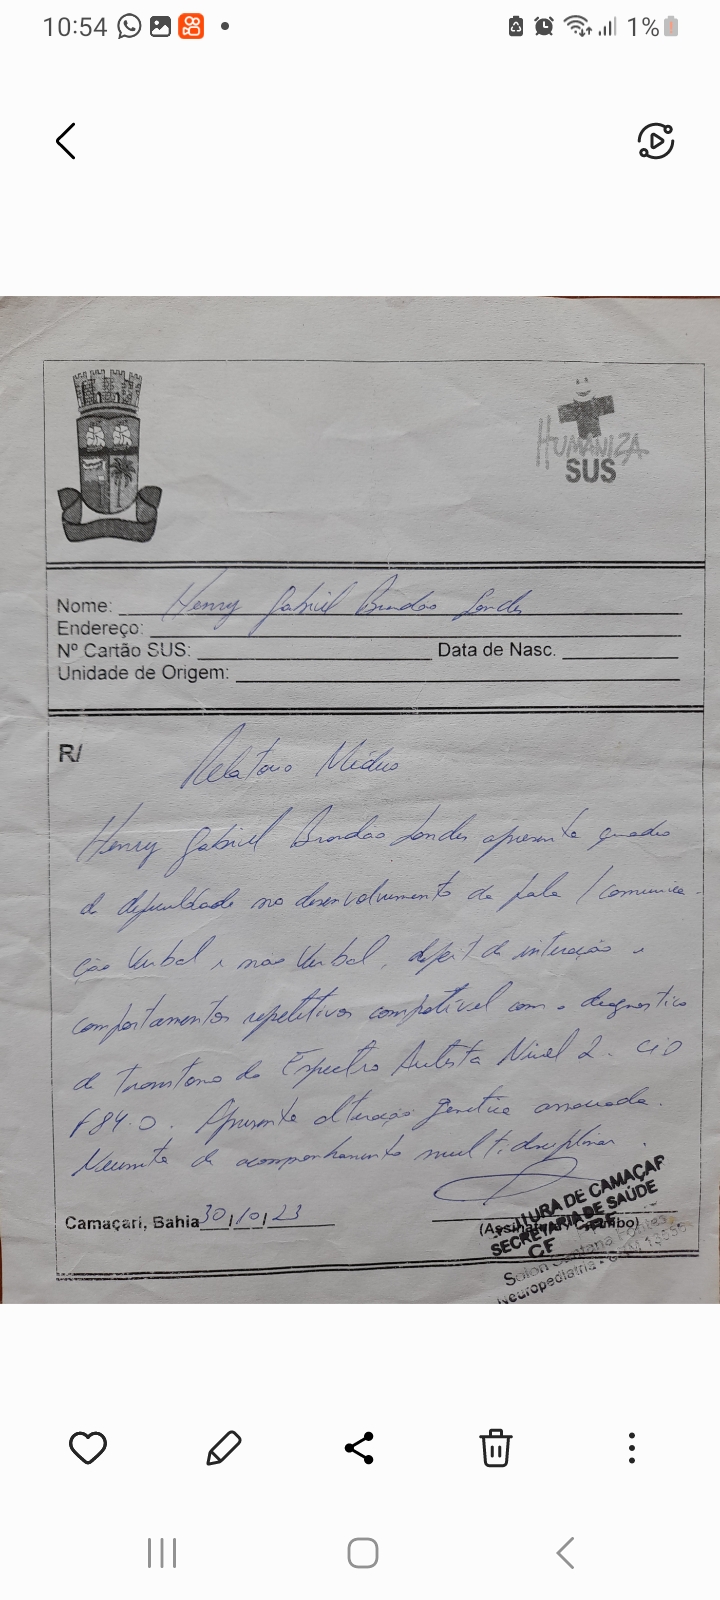 10:54
1%
HUMANIZA
SUS
Nome: Henry Gabriel Brandão
Endereço:
Nº Cartão SUS: Data de Nasc.
Unidade de Origem:
R/
Relatório Médico
Henry Gabriel Brandão apresenta quadro
de dificuldade no desenvolvimento da fala / comunica-
ção verbal e não verbal, deficit de interação e
comportamentos repetitivos compatível com o diagnostico
de Transtorno do Espectro Autista Nivel 2. CID
F84.0. Apresenta alteração genetica associada.
Necessita de acompanhamento multidisciplinar.
Camaçari, Bahia 30/10/23
(Assinatura / Carimbo)
SECRETARIA DE SAÚDE
Solon Santana Fontes
Neuropediatria